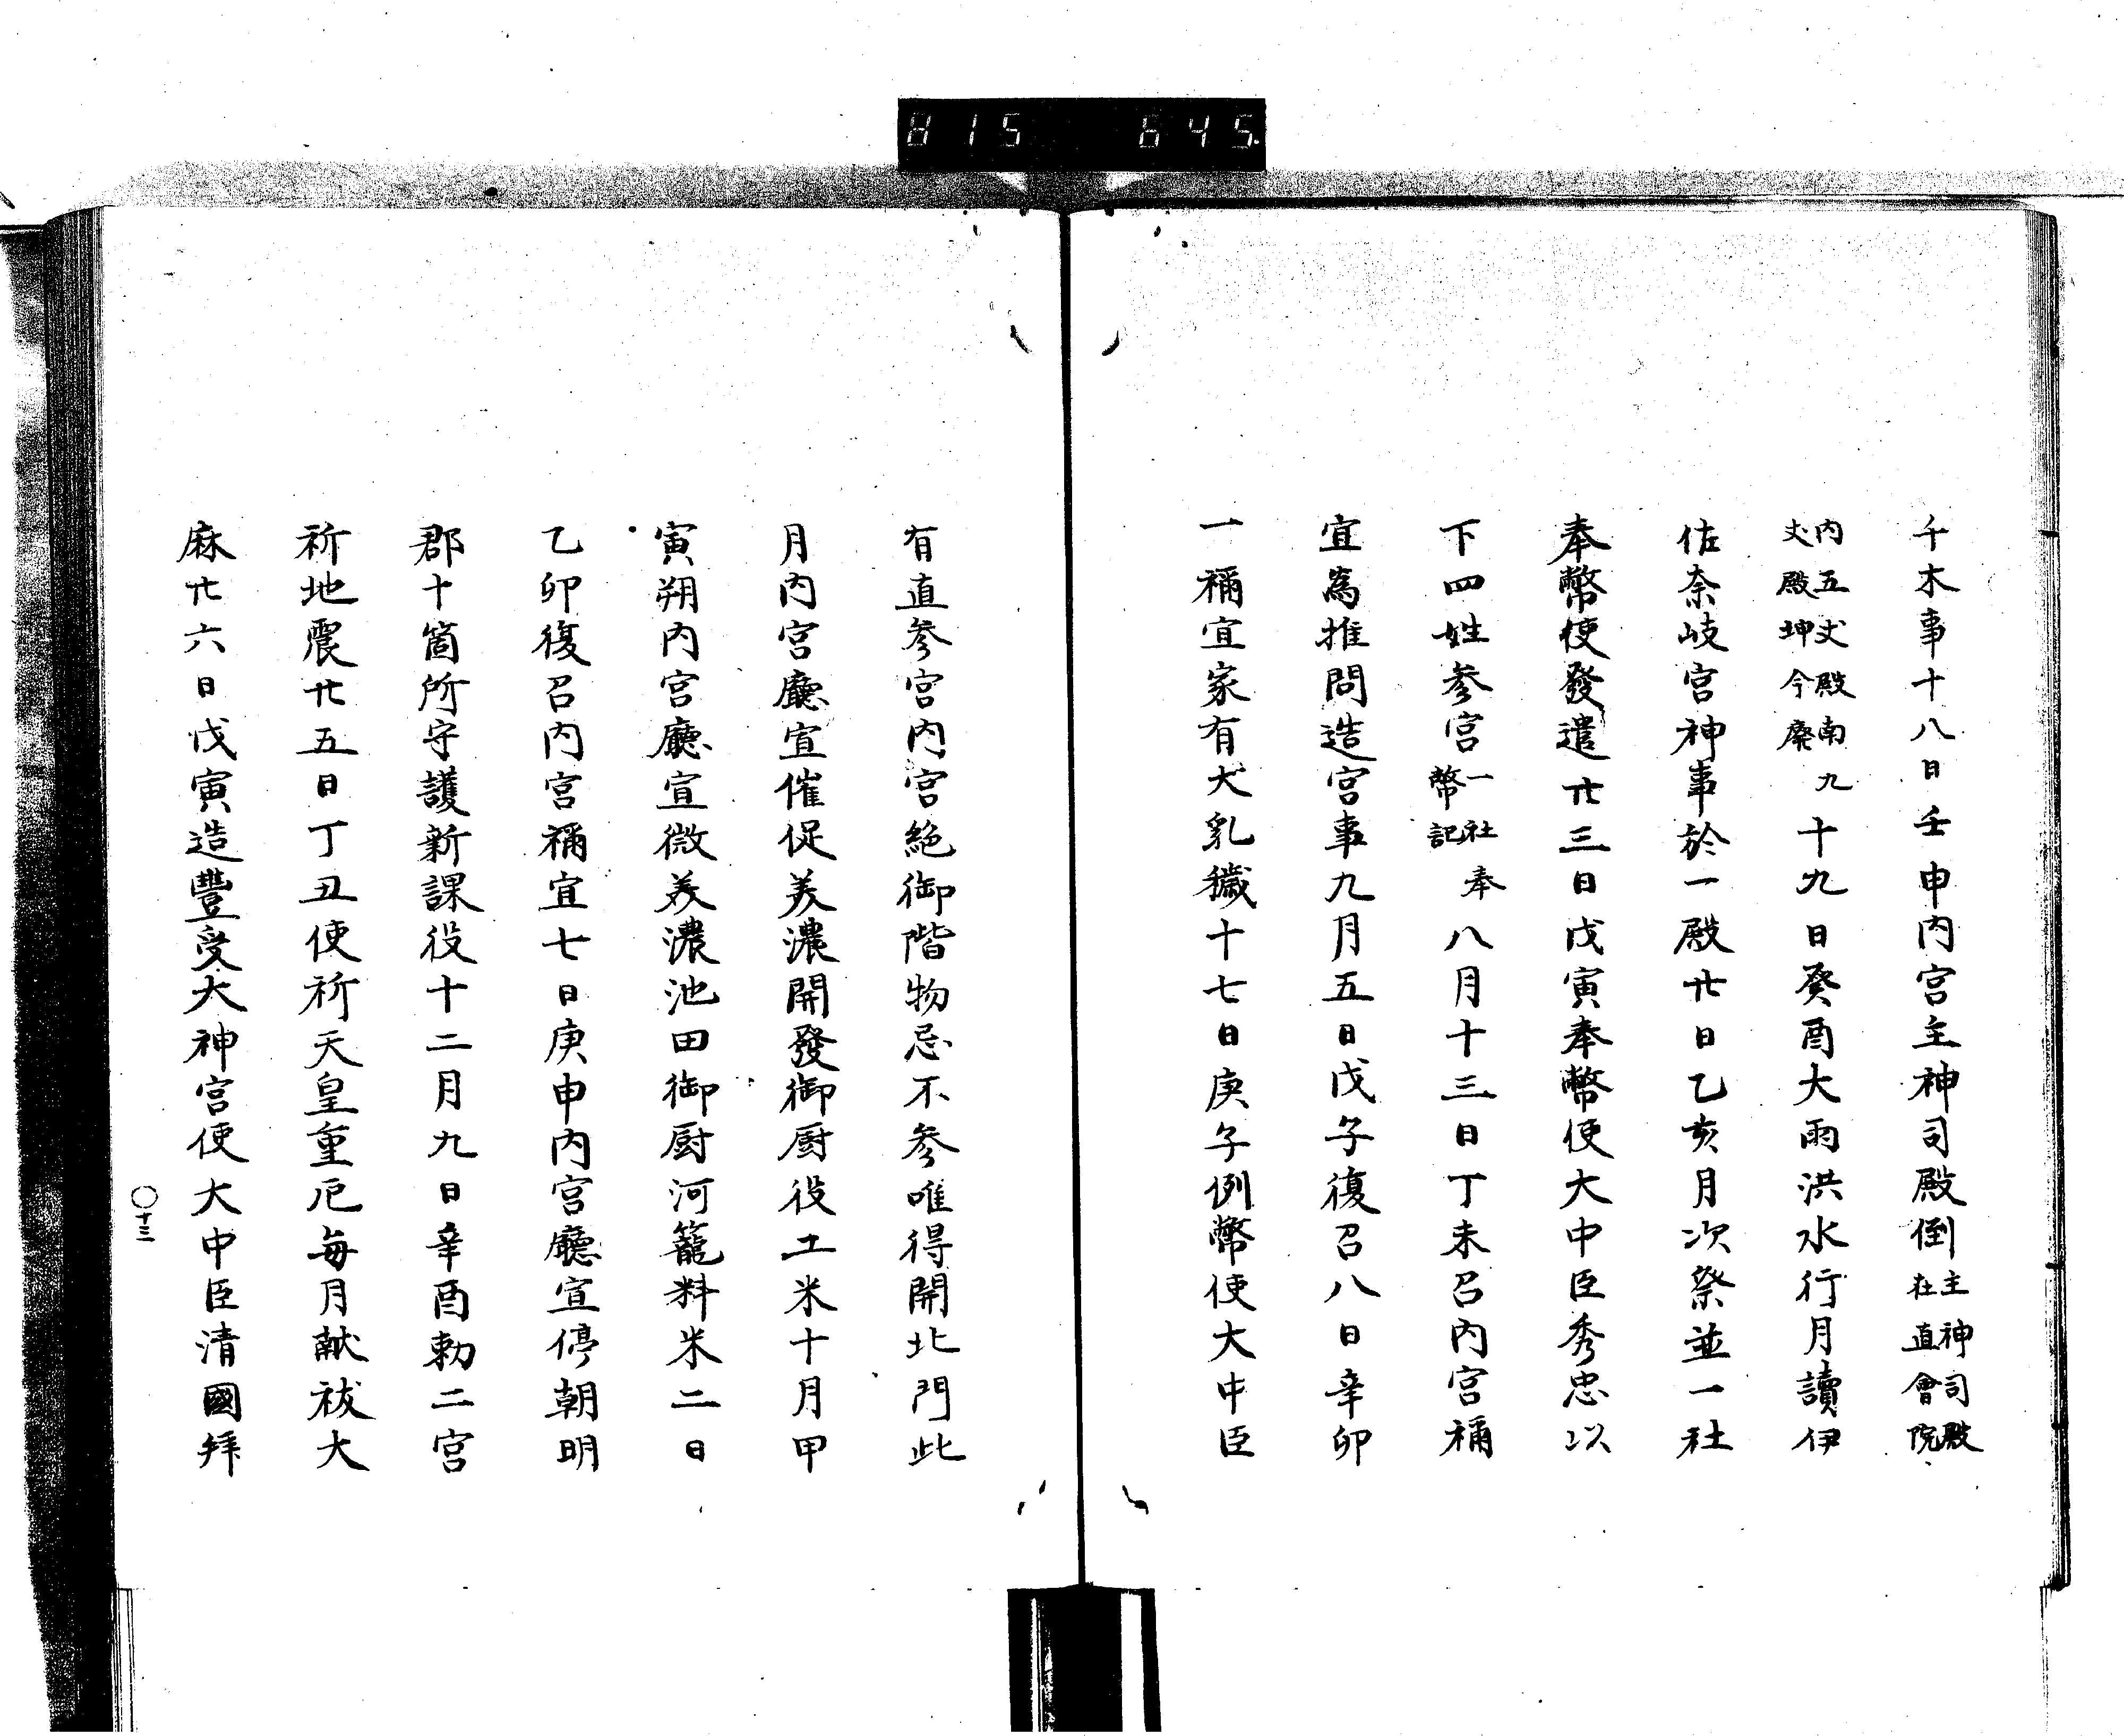 815 645
千木事十八日壬申内宮主神司殿倒主神司殿在直會院
内五丈殿南九丈殿坤今廢十九日癸酉大雨洪水行月讀伊
佐奈岐宮神事於一殿廿日乙亥月次祭並一社
奉幣使發遣廿三日戊寅奉幣使大中臣秀忠以
下四姓参宮一社奉幣記八月十三日丁未召内宮禰
宜為推問造宮事九月五日戊子復召八日辛卯
一禰宜家有犬乳穢十七日庚子例幣使大中臣
有直参宮内宮絶御階物忌不参唯得開北門此
月内宮廳宣催促美濃開發御厨役工米十月甲
寅朔内宮廳宣徴美濃池田御厨河籠料米二日
乙卯復召内宮禰宜七日庚申内宮廳宣停朝明
郡十箇所守護新課役十二月九日辛酉勅二宮
祈地震廿五日丁丑使祈天皇重厄毎月献祓大
麻廿六日戊寅造豐受大神宮使大中臣清國拜
〇十三